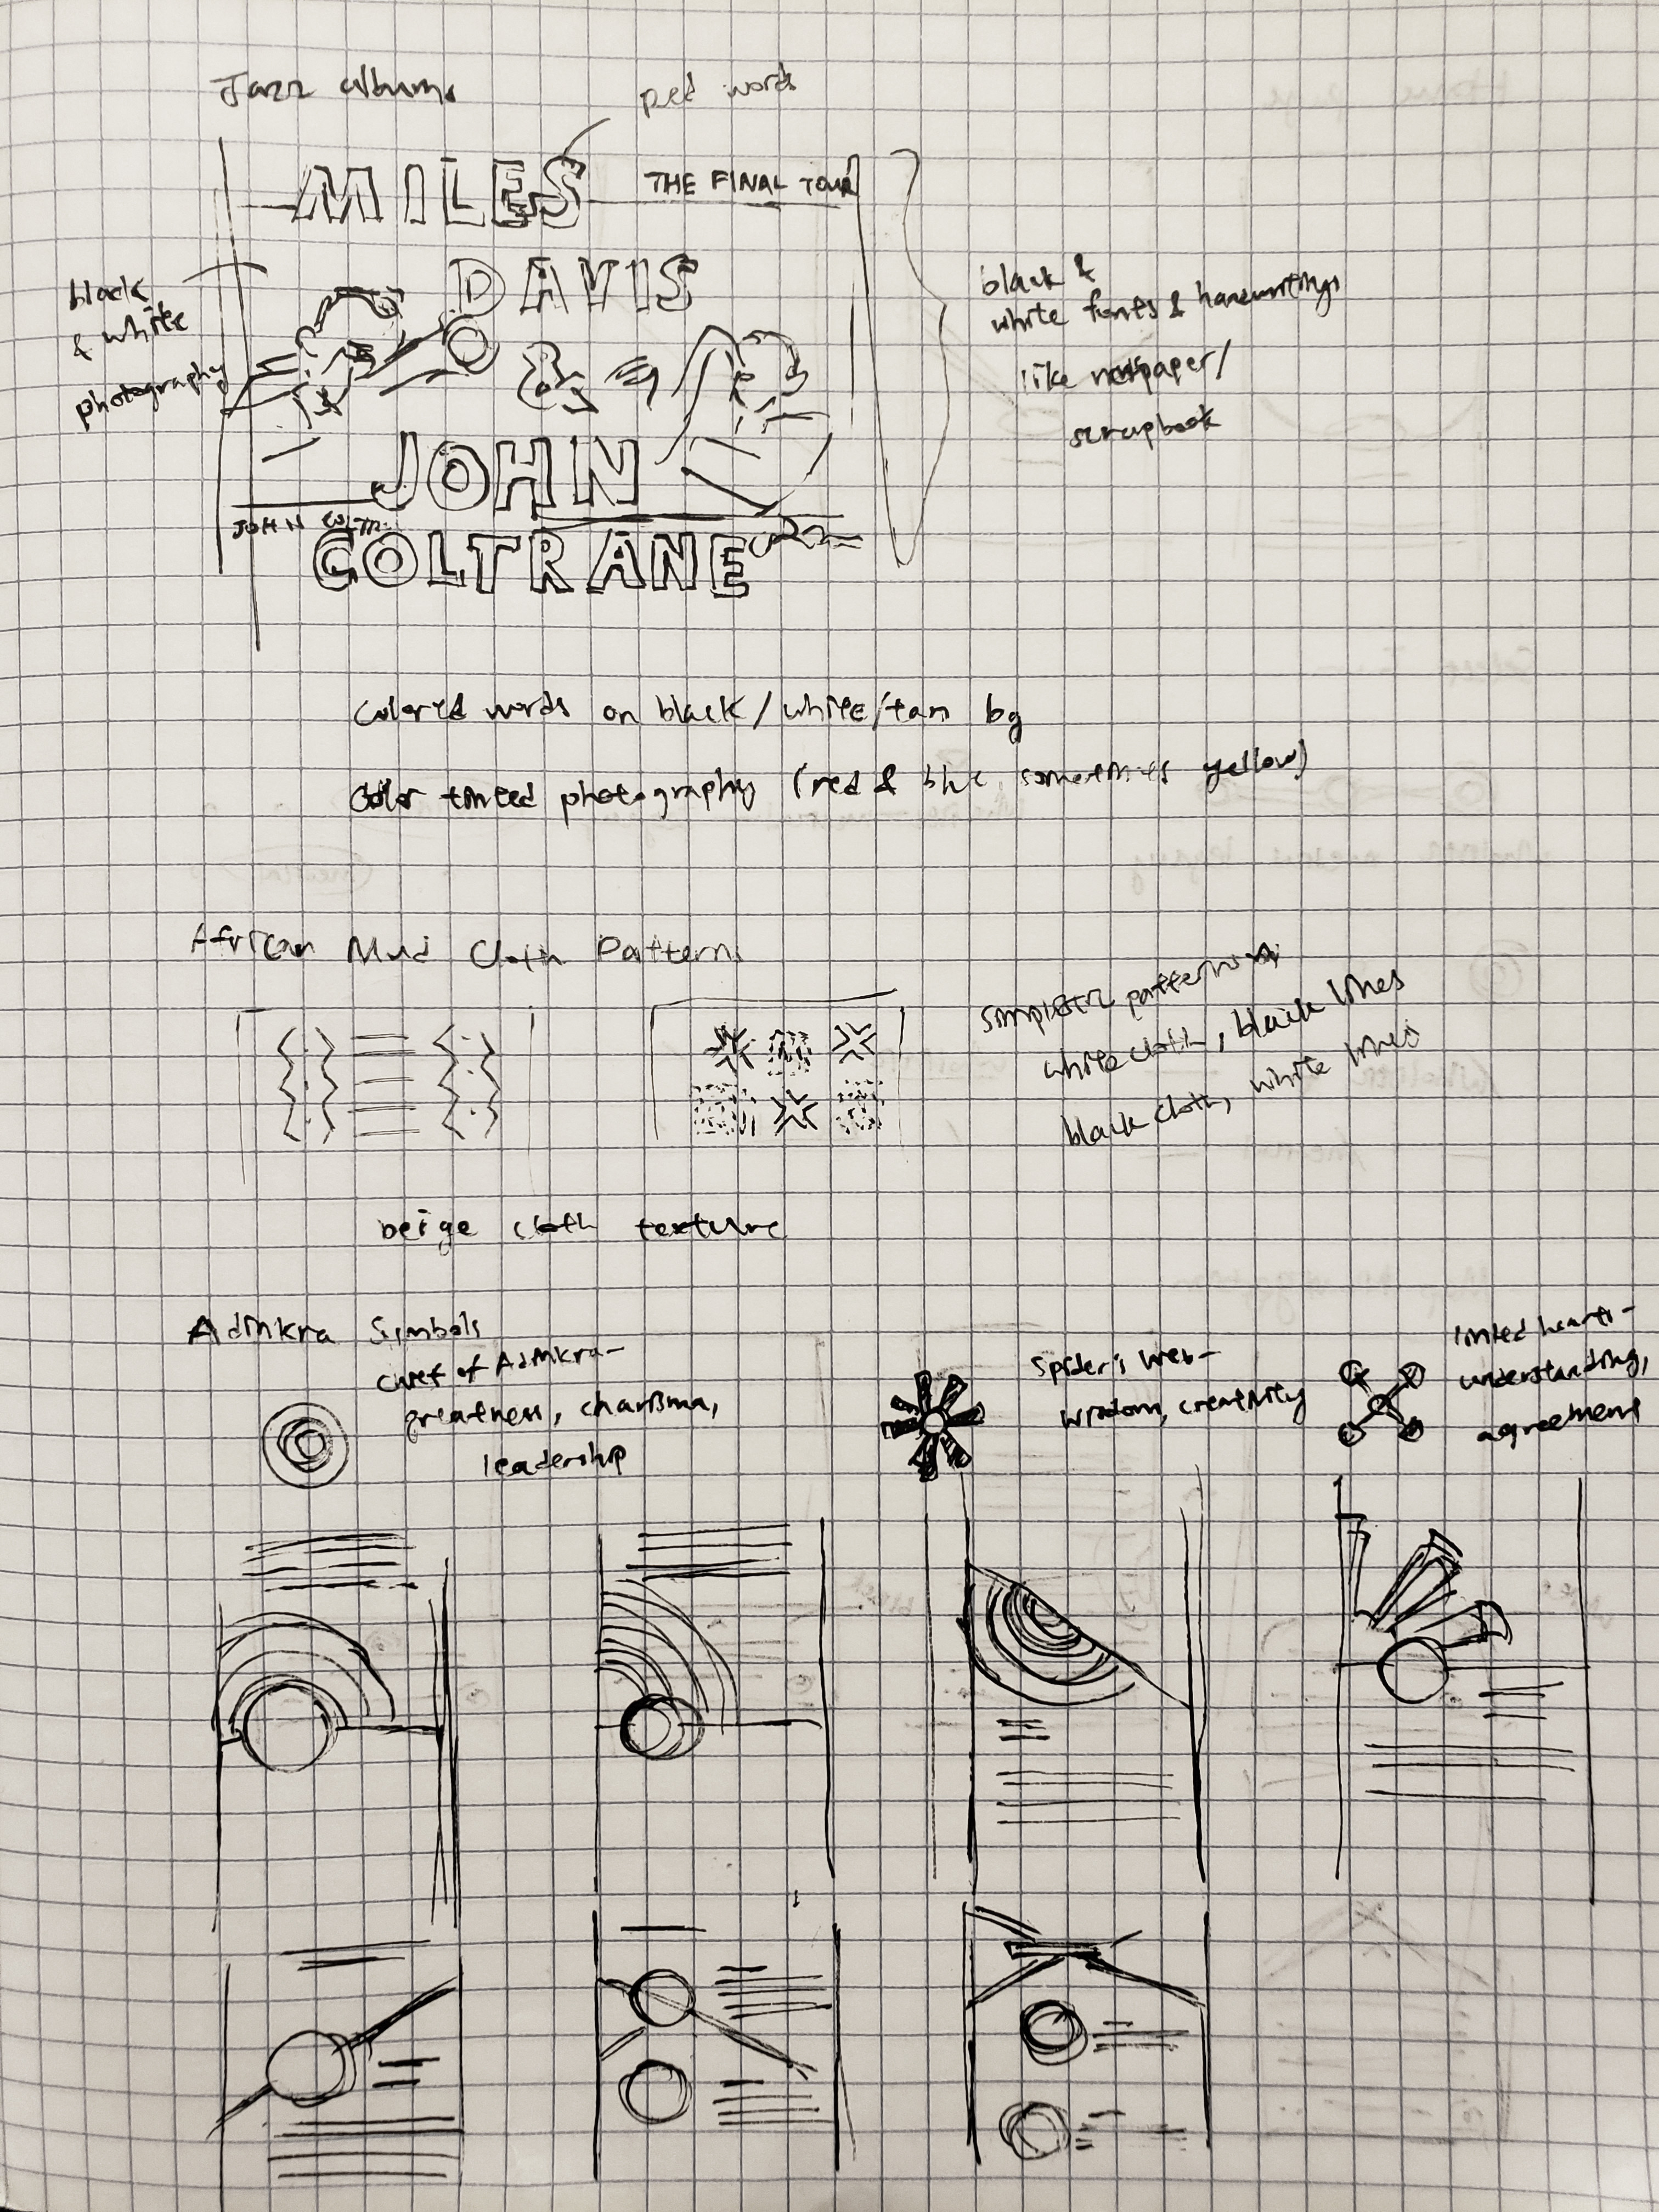 Jazz albums
red words
MILES THE FINAL TOUR
DAVIS
black
& white
photography
&
JOHN
JOHN COLTR
COLTRANE
black &
white fonts & handwritings
like newspaper/
scrapbook
colored words on black/white/tan bg
color tinted photography (red & blue sometimes yellow)
African Mud Cloth Patterns
simplistic patterns
white cloth, black lines
black cloth, white lines
beige cloth texture
Adinkra Symbols
chief of Adinkra-
greatness, charisma,
leadership
spider's web-
wisdom, creativity
linked hearts-
understanding,
agreement